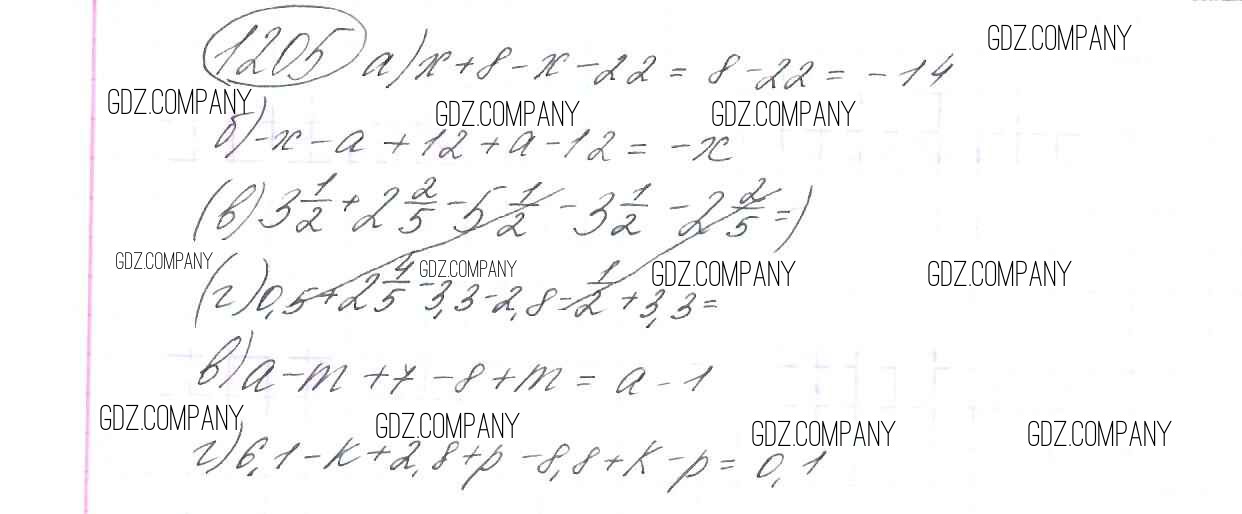 1205 а) x + 8 - x - 22 = 8 - 22 = - 14
б) - x - a + 12 + a - 12 = - x
(в) 3 1/2 + 2 2/5 - 5 1/2 - 3 1/2 - 2 2/5 =)
(г) 0,5 + 2 4/5 - 3,3 - 2,8 - 1/2 + 3,3 =
в) a - m + 7 - 8 + m = a - 1
г) 6,1 - k + 2,8 + p - 8,8 + k - p = 0,1
GDZ.COMPANY
GDZ.COMPANY
GDZ.COMPANY
GDZ.COMPANY
GDZ.COMPANY
GDZ.COMPANY
GDZ.COMPANY
GDZ.COMPANY
GDZ.COMPANY
GDZ.COMPANY
GDZ.COMPANY
GDZ.COMPANY